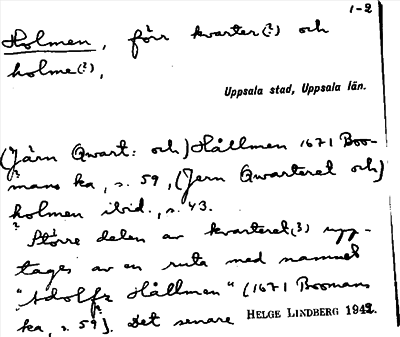 1-2
Holmen, förr kvarter(?) och
holme(?),
Uppsala stad, Uppsala län.
(Järn Qwart: och) Hållmen 1671 Boo-
mans ka, s. 59, (Jern Qwarteret och)
holmen ibid., s. 43.
Större delen av kvarteret(?) upp-
tages av en ruta med namnet
"Adolfz Hållmen" (1671 Boomans
ka, s. 59). Det senare HELGE LINDBERG 1942.